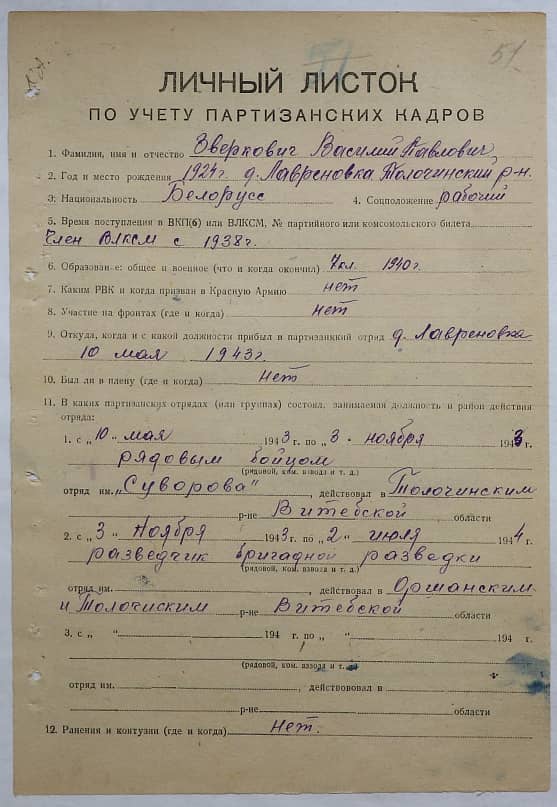 51
ЛИЧНЫЙ ЛИСТОК
ПО УЧЕТУ ПАРТИЗАНСКИХ КАДРОВ
1. Фамилия, имя и отчество Зверкович Василий Павлович
2. Год и место рождения 1924г. д. Лавреновка Толочинский р-н.
3. Национальность Белорусс 4. Соцположение рабочий
5. Время поступления в ВКП(б) или ВЛКСМ, № партийного или комсомольского билета
Член ВЛКСМ с 1938г.
6. Образование: общее и военное (что и когда окончил) 7 кл. 1940г.
7. Каким РВК и когда призван в Красную Армию нет
8. Участие на фронтах (где и когда) нет
9. Откуда, когда и с какой должности прибыл в партизанский отряд д. Лавреновка
10 мая 1943г.
10. Был ли в плену (где и когда) нет
11. В каких партизанских отрядах (или группах) состоял, занимаемая должность и район действия
отряда:
1. с „10" мая 1943 г. по „3" ноября 1943
рядовым бойцом
(рядовой, ком. взвода и т. д.)
отряд им. „Суворова", действовал в Толочинским
р-не Витебской области
2. с „3" Ноября 1943 г. по „2" июля 1944
разведчик бригадной разведки
(рядовой, ком. взвода и т. д.)
отряд им. , действовал в Оршанским
и Толочиским р-не Витебской области
3. с „ " 194 г. по „ " 194 г.
(рядовой, ком. взвода и т. д.)
отряд им. , действовал в
р-не области
12. Ранения и контузии (где и когда) нет.